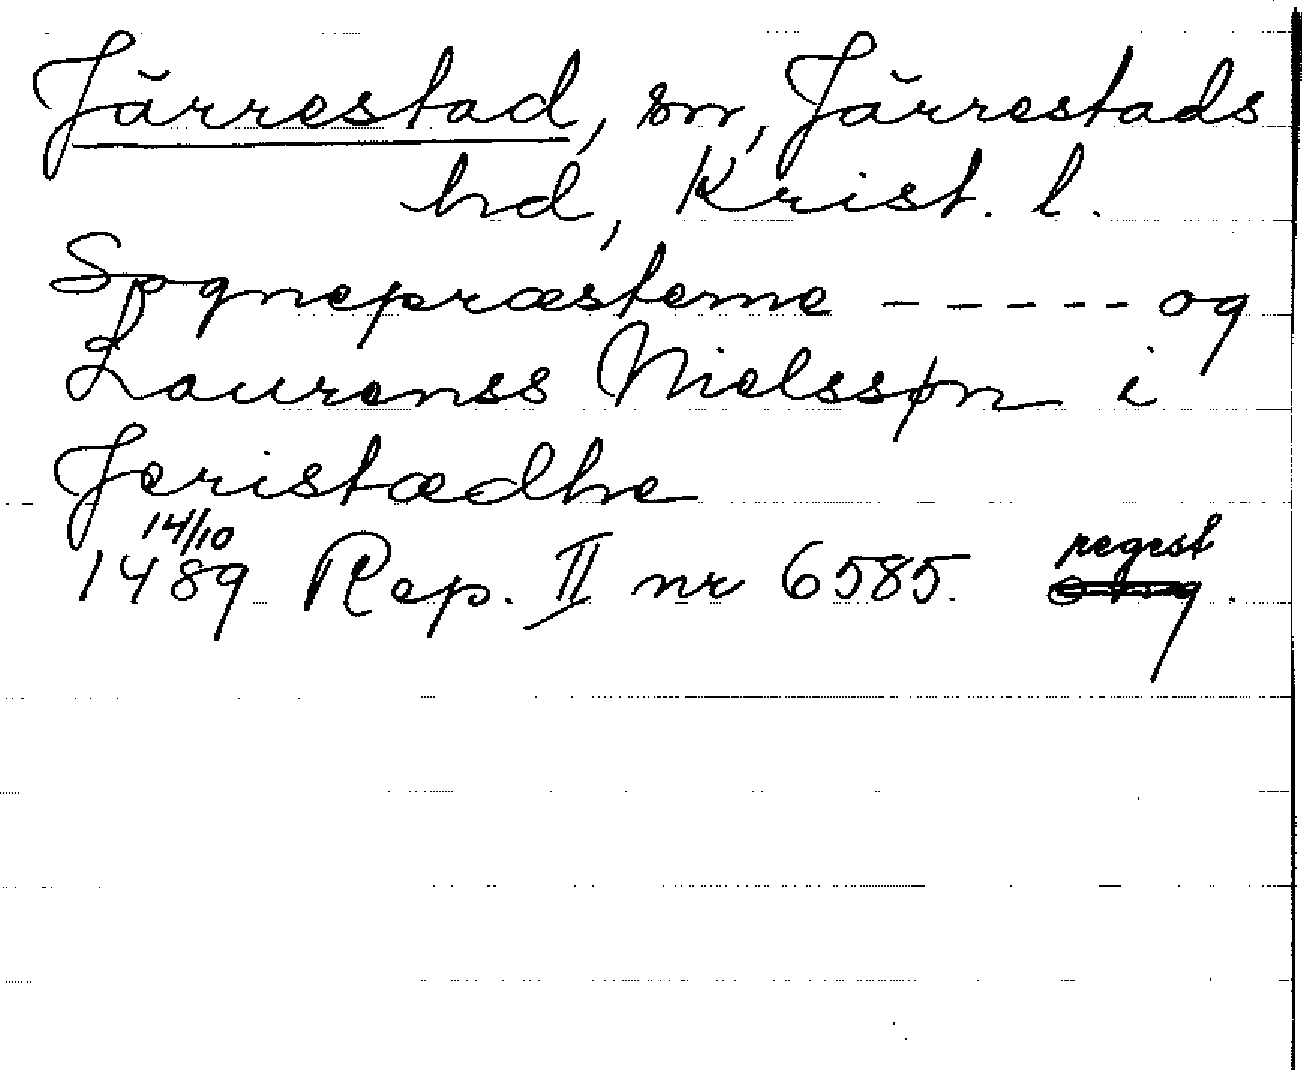 Järrestad, sn, Järrestads
hd, Krist. l.
Sognepræsterne ----- og
Laurenss Nielssøn i
Jeristædhe
14/10
1489 Rep. II nr 6585. regest.